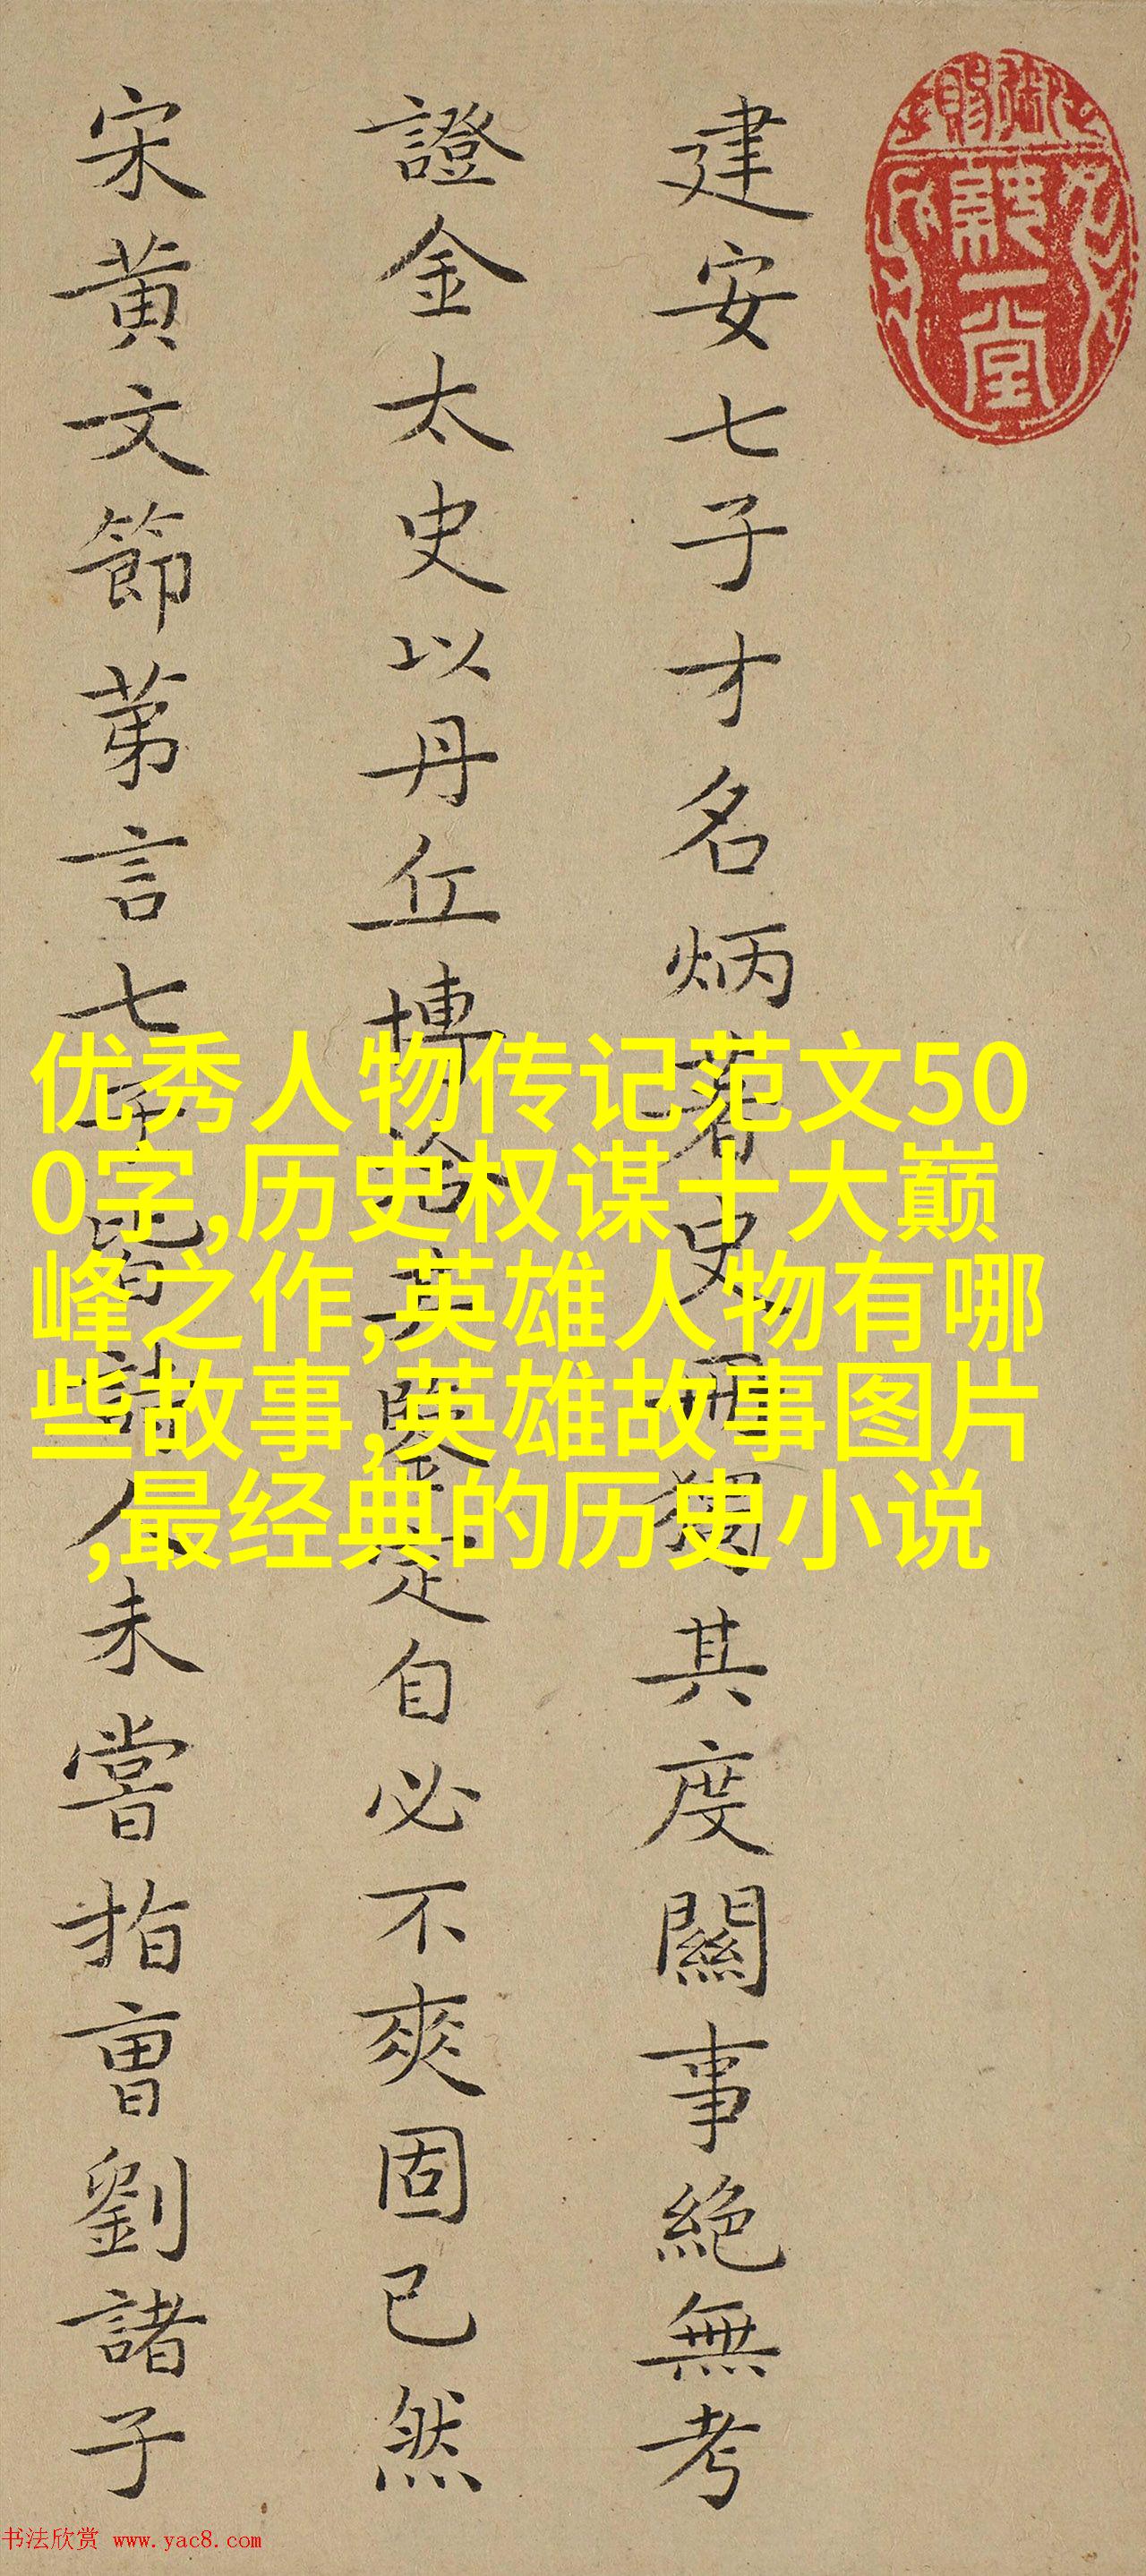 建安七子才名炳著史册獨其度關事絶無考
證金太史以丹丘博洽其鑒定自必不爽固已然
宋黄文節苐言七子皆詩人未嘗指曹劉諸子
优秀人物传记范文50
0字,历史权谋十大巅
峰之作,英雄人物有哪
些故事,英雄故事图片
,最经典的历史小说
书法欣赏 www.yac8.com